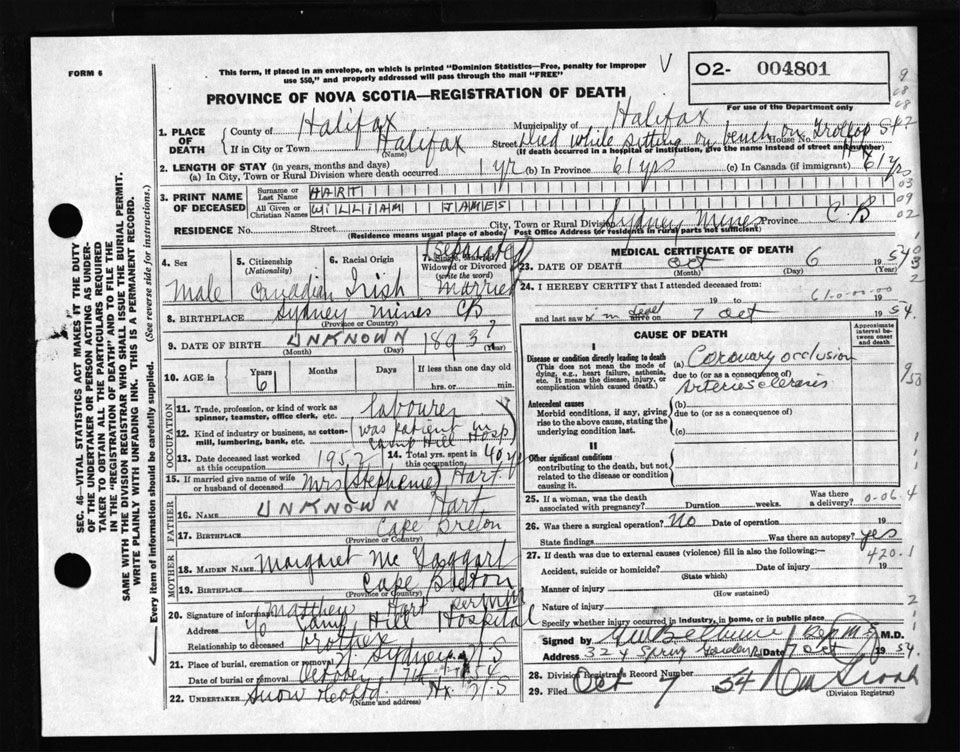 FORM 6
This form, if placed in an envelope, on which is printed "Dominion Statistics—Free, penalty for improper
use $50," and properly addressed will pass through the mail "FREE"
V
O2- 004801
For use of the Department only
PROVINCE OF NOVA SCOTIA—REGISTRATION OF DEATH
1. PLACE OF DEATH
County of Halifax Municipality of Halifax
If in City or Town Halifax (Name) Street died while sitting on bench on House No.
(If death occurred in a hospital or institution, give the name instead of street and number)
2. LENGTH OF STAY (in years, months and days)
(a) In City, Town or Rural Division where death occurred 1 yr (b) In Province 61 yrs (c) In Canada (if immigrant) 61 yrs
3. PRINT NAME OF DECEASED
Surname or Last Name HART
All Given or Christian Names WILLIAM JAMES
RESIDENCE No. Street City, Town or Rural Division Sydney Mines Province CB
(Residence means usual place of abode. Post Office Address for residents in rural parts not sufficient)
4. Sex Male
5. Citizenship (Nationality) Canadian
6. Racial Origin Irish
7. Single, Married, Widowed or Divorced (write the word) (separated) Married
8. BIRTHPLACE Sydney Mines CB
(Province or Country)
9. DATE OF BIRTH UNKNOWN 1893?
(Month) (Day) (Year)
10. AGE in Years 61 Months Days If less than one day
hrs. or min.
OCCUPATION
11. Trade, profession, or kind of work as spinner, teamster, office clerk, etc. labourer
12. Kind of industry or business, as cotton-mill, lumbering, bank, etc. (was patient in Camp Hill Hosp)
13. Date deceased last worked at this occupation 1952 14. Total yrs. spent in this occupation 40 yrs
15. If married give name of wife or husband of deceased Mrs (Stephenie) Hart
FATHER
16. Name UNKNOWN Hart
17. Birthplace Cape Breton
(Province or Country)
MOTHER
18. MAIDEN NAME Margaret Mc Taggart
19. BIRTHPLACE Cape Breton
(Province or Country)
20. Signature of informant Matthew Hart
Address c/o Camp Hill Hospital
Relationship to deceased brother
21. Place of burial, cremation or removal N. Sydney N.S
Date of burial or removal October 1954
22. UNDERTAKER Snow Hx. N.S
(Name and address)
MEDICAL CERTIFICATE OF DEATH
23. DATE OF DEATH Oct 6 1954
(Month) (Day) (Year)
24. I HEREBY CERTIFY that I attended deceased from
19 to 19
61.000.00
and last saw h im dead alive on 7 Oct 1954.
CAUSE OF DEATH
Approximate interval between onset and death
I
Disease or condition directly leading to death (a) Coronary occlusion
(This does not mean the mode of dying, e.g., heart failure, asthenia, etc. It means the disease, injury, or complication which caused death.)
due to (or as a consequence of)
Arteriosclerosis
Antecedent causes
Morbid conditions, if any, giving rise to the above cause, stating the underlying condition last.
(b)
due to (or as a consequence of)
(c)
II
Other significant conditions
contributing to the death, but not related to the disease or condition causing it.
25. If a woman, was the death associated with pregnancy? Duration weeks. Was there a delivery?
0-06.4
26. Was there a surgical operation? No Date of operation 19
State findings Was there an autopsy? yes
27. If death was due to external causes (violence) fill in also the following:—
420.1
Accident, suicide or homicide? Date of injury 19
(State which)
Manner of injury
(How sustained)
Nature of injury
Specify whether injury occurred in industry, in home, or in public place
Signed by M.D.
Address 324 Spring Garden Rd Date 7 Oct 1954.
28. Division Registrar's Record Number
29. Filed Oct 7 1954
(Division Registrar)
SEC. 46—VITAL STATISTICS ACT MAKES IT THE DUTY
OF THE UNDERTAKER OR PERSON ACTING AS UNDER-
TAKER TO OBTAIN ALL THE PARTICULARS REQUIRED
IN THE "REGISTRATION OF DEATH" AND TO FILE THE
SAME WITH THE DIVISION REGISTRAR WHO SHALL ISSUE THE BURIAL PERMIT.
WRITE PLAINLY WITH UNFADING INK. THIS IS A PERMANENT RECORD.
Every item of information should be carefully supplied. (See reverse side for instructions.)